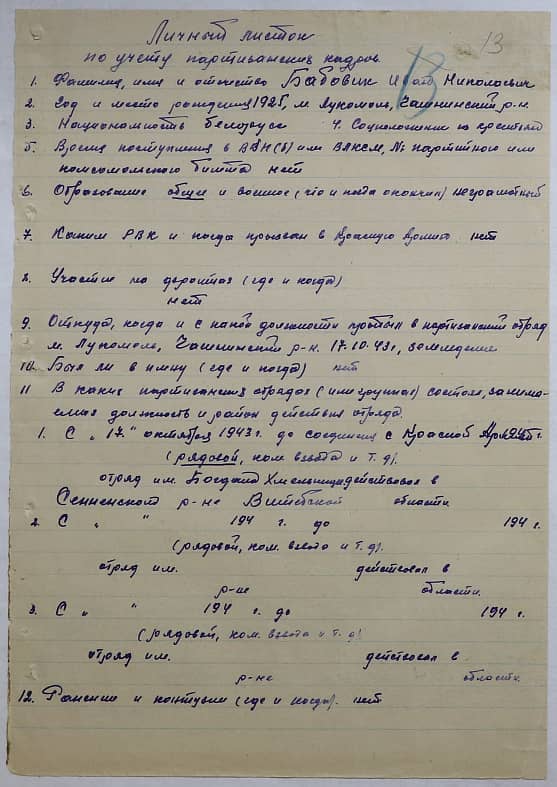 13
Личный листок
по учету партизанских кадров.
1. Фамилия, имя и отчество Бабовик Иван Николаевич
2. Год и место рождения 1925, м. Лукомль, Чашникский р-н.
3. Национальность белорус 4. Соцположение из крестьян
5. Время поступления в ВКП(б) или ВЛКСМ, № партийного или
комсомольского билета нет
6. Образование общее и военное (что и когда окончил) неграмотный
7. Каким РВК и когда призван в Красную Армию нет
8. Участие на фронтах (где и когда)
нет
9. Откуда, когда и с какой должности прибыл в партизанский отряд
м. Лукомль, Чашникский р-н. 17.10.43 г., земледелие
10. Был ли в плену (где и когда) нет
11 В каких партизанских отрядах (или группах) состоял, занима-
емая должность и район действия отряда.
1. С "17" октября 1943 г. до соединения с Красной Арм. 194 г.
(рядовой, ком. взвода и т. д).
отряд им. Богдана Хмельницк действовал в
Сенненского р-не Витебской области
2. С " " 194 г. до 194 г.
(рядовой, ком. взвода и т. д).
отряд им. действовал в
р-не области.
3. С " " 194 г. до 194 г.
(рядовой, ком. взвода и т. д)
отряд им. действовал в
р-не области.
12. Ранение и контузии (где и когда). нет